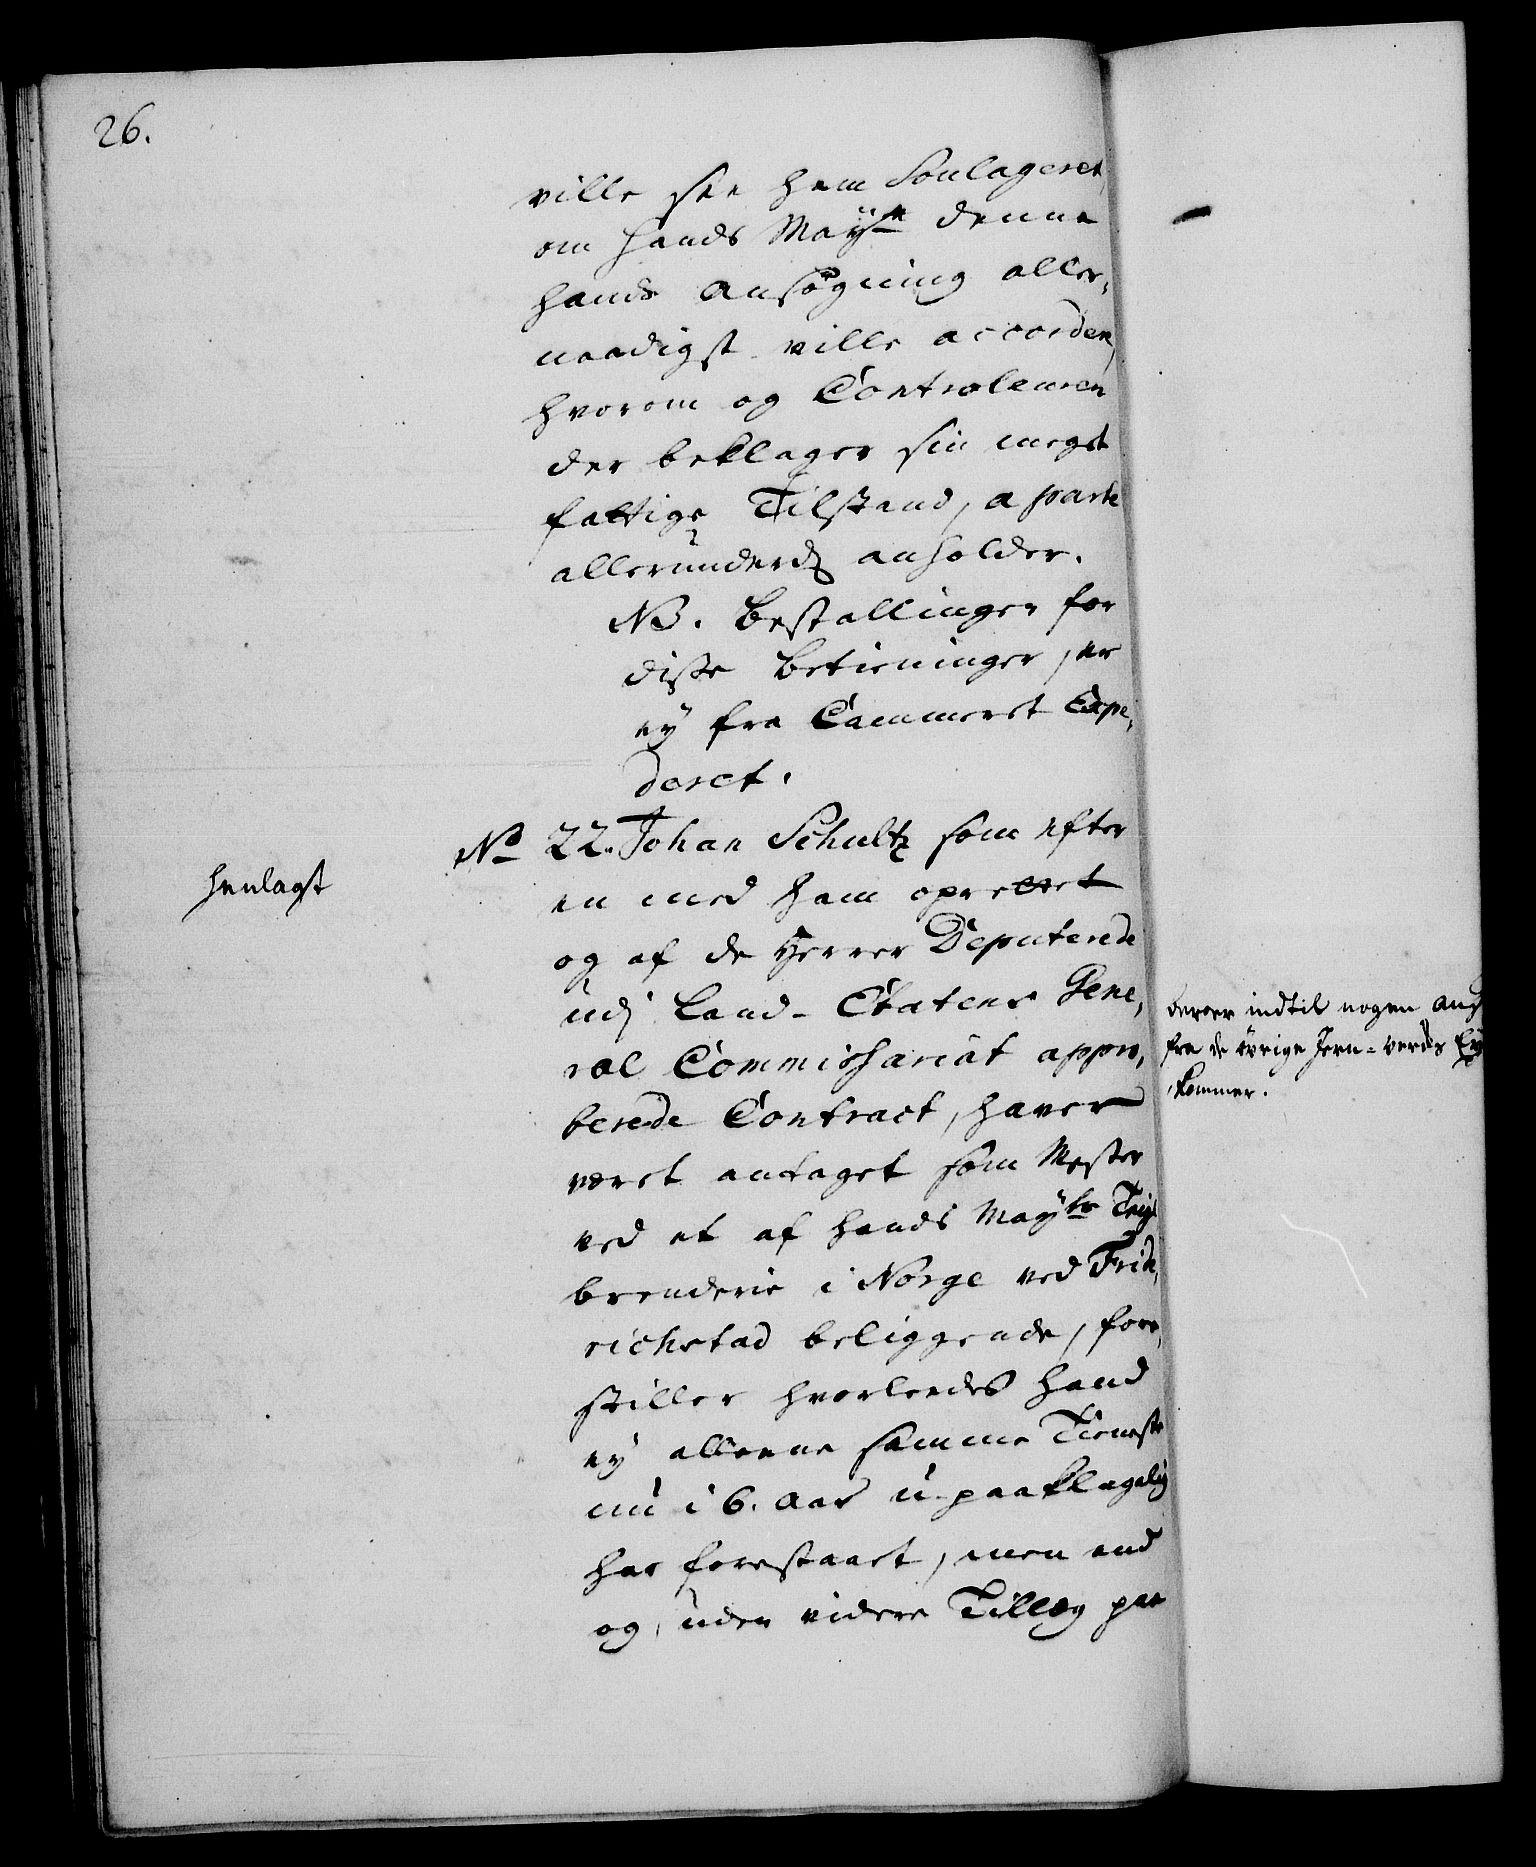 26.
ville see ham Soulageret,
om hands Maÿst denne
hands ansøgning aller,
naadigst ville accordere,
hvorom og Controleuren
der beklager sin meget
fattige Tilstand, a parte
allerunderd anholder.
NB. Bestallinger for
disse betieninger, er
ey fra Cammeret Expe,
deret.
No 22. Johan Schultz som efter
henlagt
en med ham oprettet
og af de Herrer Deputerede
udj Land-Etatens Gene,
ral Commissariat appro,
berede Contract, haver
været antaget som Mester
ved et af hands Mayts Teigl
brenderie i Norge ved Fride,
richstad beliggende, fore,
stiller hvorledes hand
ey alleene samme Tieneste
nu i 6. Aar u-paaklagelig
har forestaaet, men end
og, uden videre Tillæg paa
beroer indtil nogen Ans
fra de øvrige Jern-værkers Ey
kommer.